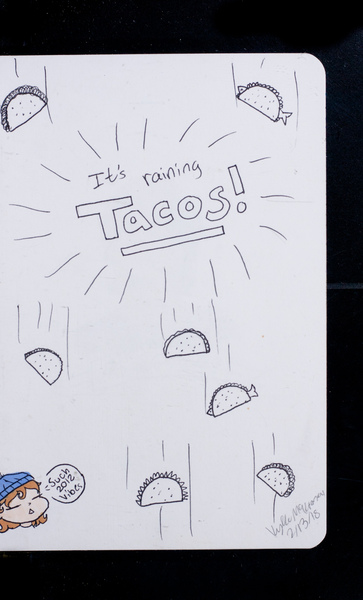 It's raining
Tacos!
Such
2012
Vibes
2/13/18